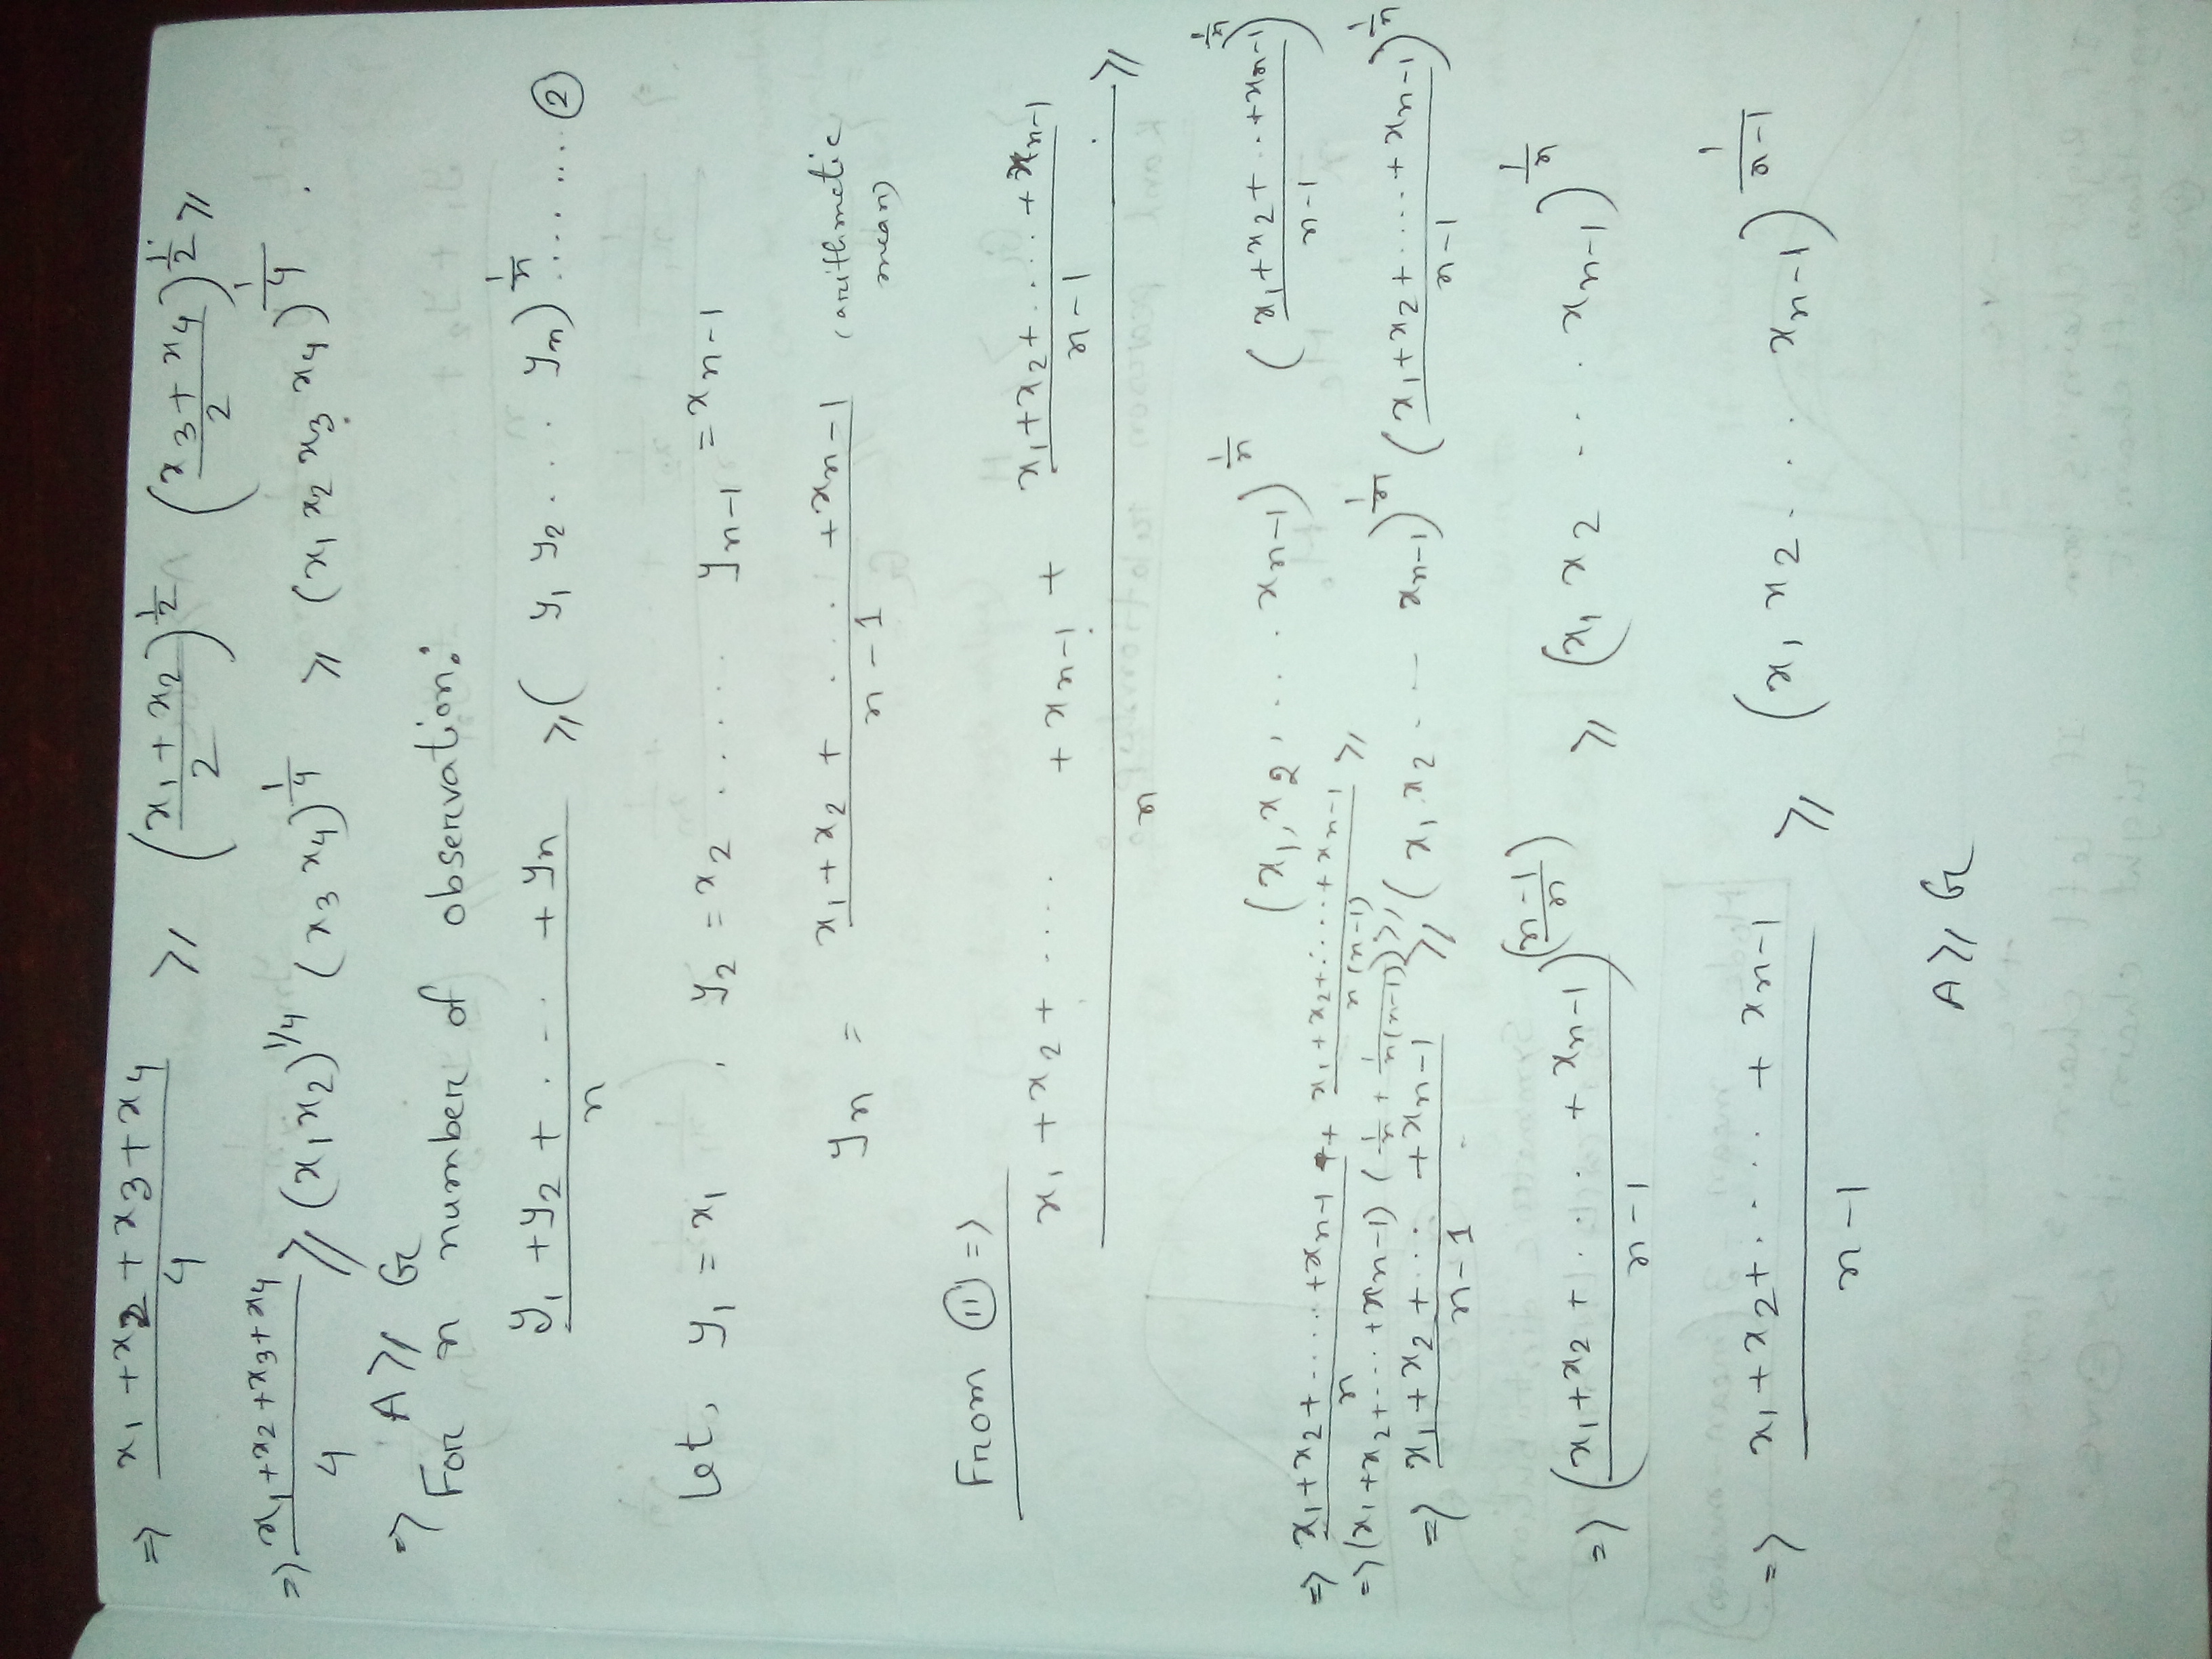 => x₁ + x₂ + x₃ + x₄ / 4 ⩾ (x₁ + x₂ / 2)^1/2 (x₃ + x₄ / 2)^1/2 ⩾
=> x₁ + x₂ + x₃ + x₄ / 4 ⩾ (x₁ x₂)^1/4 (x₃ x₄)^1/4 ⩾ (x₁ x₂ x₃ x₄)^1/4 .
A ⩾ G
=> For n number of observation:
y₁ + y₂ + . . . . + yn / n ⩾ ( y₁ y₂ . . . yn)^1/n ........ ②
Let, y₁ = x₁ , y₂ = x₂ . . . . . yn-1 = xn-1
yn = x₁ + x₂ + . . . . + xn-1 / n-1 (arithmetic mean)
From ⑪ =>
x₁ + x₂ + . . . . . + xn-1 + x₁ + x₂ + .... + xn-1 / n-1 / n ⩾
(x₁, x₂, . . . xn-1)^1/n (x₁ + x₂ + ... + xn-1 / n-1)^1/n
=> x₁ + x₂ + ..... + xn-1 / n + x₁ + x₂ + ..... + xn-1 / n(n-1) ⩾
=> (x₁ + x₂ + ... + xn-1) (1/n + 1/n(n-1)) ⩾
=> x₁ + x₂ + ... + xn-1 / n-1 ⩾ (x₁ x₂ . . . xn-1)^1/n (x₁ + x₂ + ..... + xn-1 / n-1)^1/n
=> (x₁ + x₂ + . . . + xn-1 / n-1)^(n-1/n) ⩾ (x₁ x₂ . . . . xn-1)^1/n
=> x₁ + x₂ + . . . . + xn-1 / n-1 ⩾ (x₁ x₂ . . . . xn-1)^1/n-1
A ⩾ G